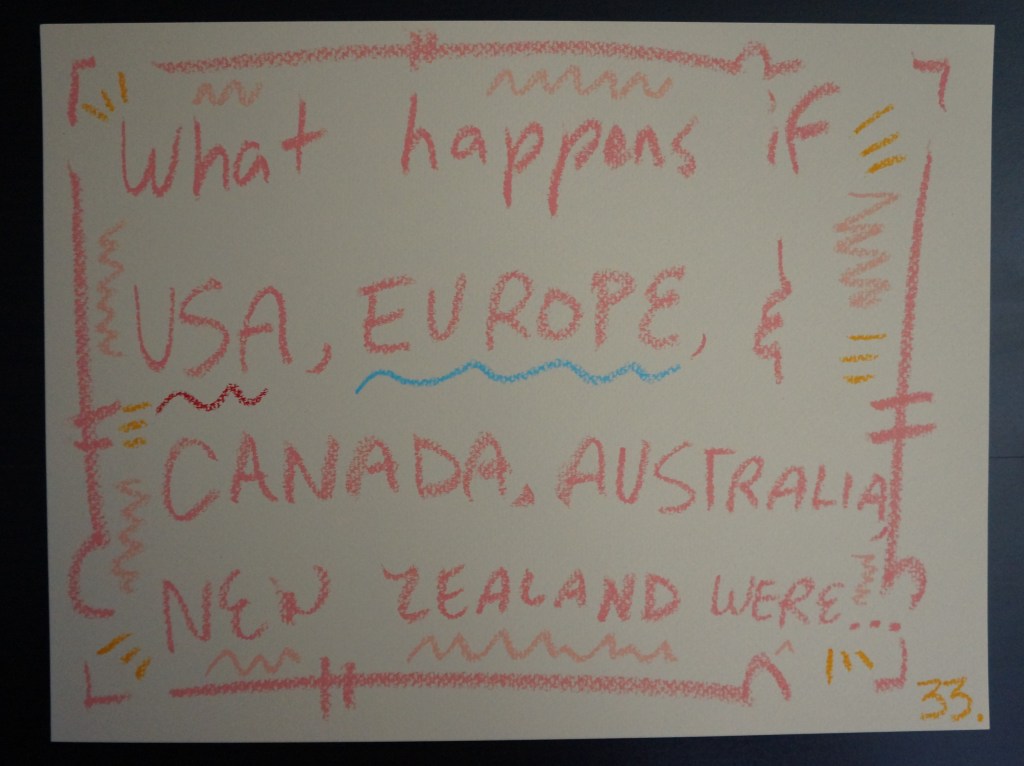 What happens if
USA, EUROPE, &
CANADA, AUSTRALIA,
NEW ZEALAND WERE...
33.